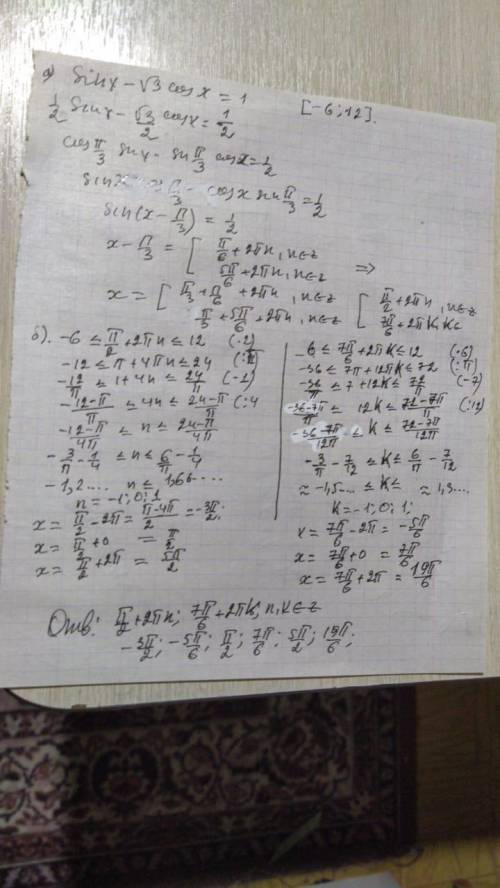 а) sinx − √3 cosx = 1 [−6;12].
1/2 sinx − √3/2 cosx = 1/2
cos π/3 sinx − sin π/3 cosx = 1/2
sinx cos π/3 − cosx sin π/3 = 1/2
sin(x − π/3) = 1/2
x − π/3 = [ π/6 + 2πn, n∈z
5π/6 + 2πn, n∈z =>
x = [ π/3 + π/6 + 2πn, n∈z [ π/2 + 2πn, n∈z
π/3 + 5π/6 + 2πn, n∈z 7π/6 + 2πk, k∈
б). −6 ≤ π/2 + 2πn ≤ 12 (·2)
−12 ≤ π + 4πn ≤ 24 (:π)
−12/π ≤ 1 + 4n ≤ 24/π (−1)
−12−π/π ≤ 4n ≤ 24−π/π (:4
−12−π/4π ≤ n ≤ 24−π/4π
−3/π − 1/4 ≤ n ≤ 6/π − 1/4
−1,2.... n ≤ 1,66....
n = −1; 0; 1
x = π/2 − 2π = π−4π/2 = −3π/2;
x = π/2 + 0 = π/2
x = π/2 + 2π = 5π/2
−6 ≤ 7π/6 + 2πk ≤ 12 (·6)
−36 ≤ 7π + 12πk ≤ 72 (:π)
−36/π ≤ 7 + 12k ≤ 72/π (−7)
−36−7π/π ≤ 12k ≤ 72−7π/π (:12)
−36−7π/12π ≤ k ≤ 72−7π/12π
−3/π − 7/12 ≤ k ≤ 6/π − 7/12
≈ −1,5.... ≤ k ≤ ≈ 1,3....
k = −1; 0; 1;
x = 7π/6 − 2π = −5π/6
x = 7π/6 + 0 = 7π/6
x = 7π/6 + 2π = 19π/6
Отв: π/2 + 2πn; 7π/6 + 2πk; n,k∈z
−3π/2; −5π/6; π/2; 7π/6; 5π/2; 19π/6;